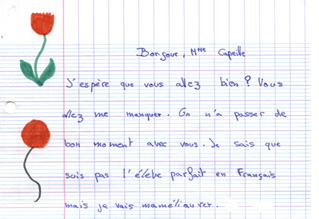 Bonjour, Mme Capelle
J'espère que vous allez bien ? Vous
allez me manquer. On n'a passer de
bon moment avec vous. Je sais que
suis pas l'élève parfait en Français
mais je vais maméliaurer.